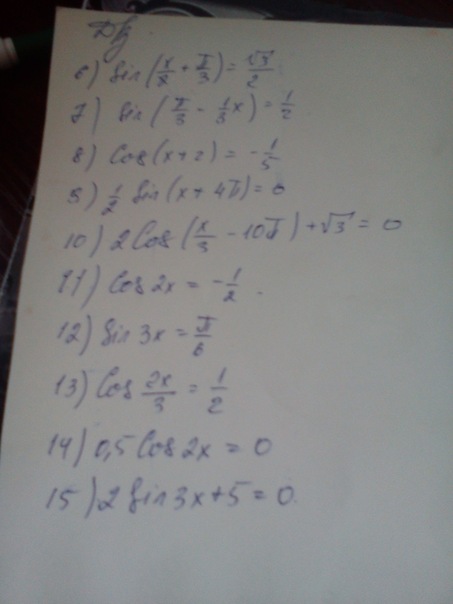 Дз
6) sin(x/2 + π/3) = √3/2
7) sin(π/3 - 1/3x) = 1/2
8) cos(x+2) = -1/5
9) 1/2 sin(x + 4π) = 0
10) 2cos(x/3 - 10π) + √3 = 0
11) cos2x = -1/2.
12) sin3x = π/6
13) cos 2x/3 = 1/2
14) 0,5cos2x = 0
15) 2sin3x+5 = 0.